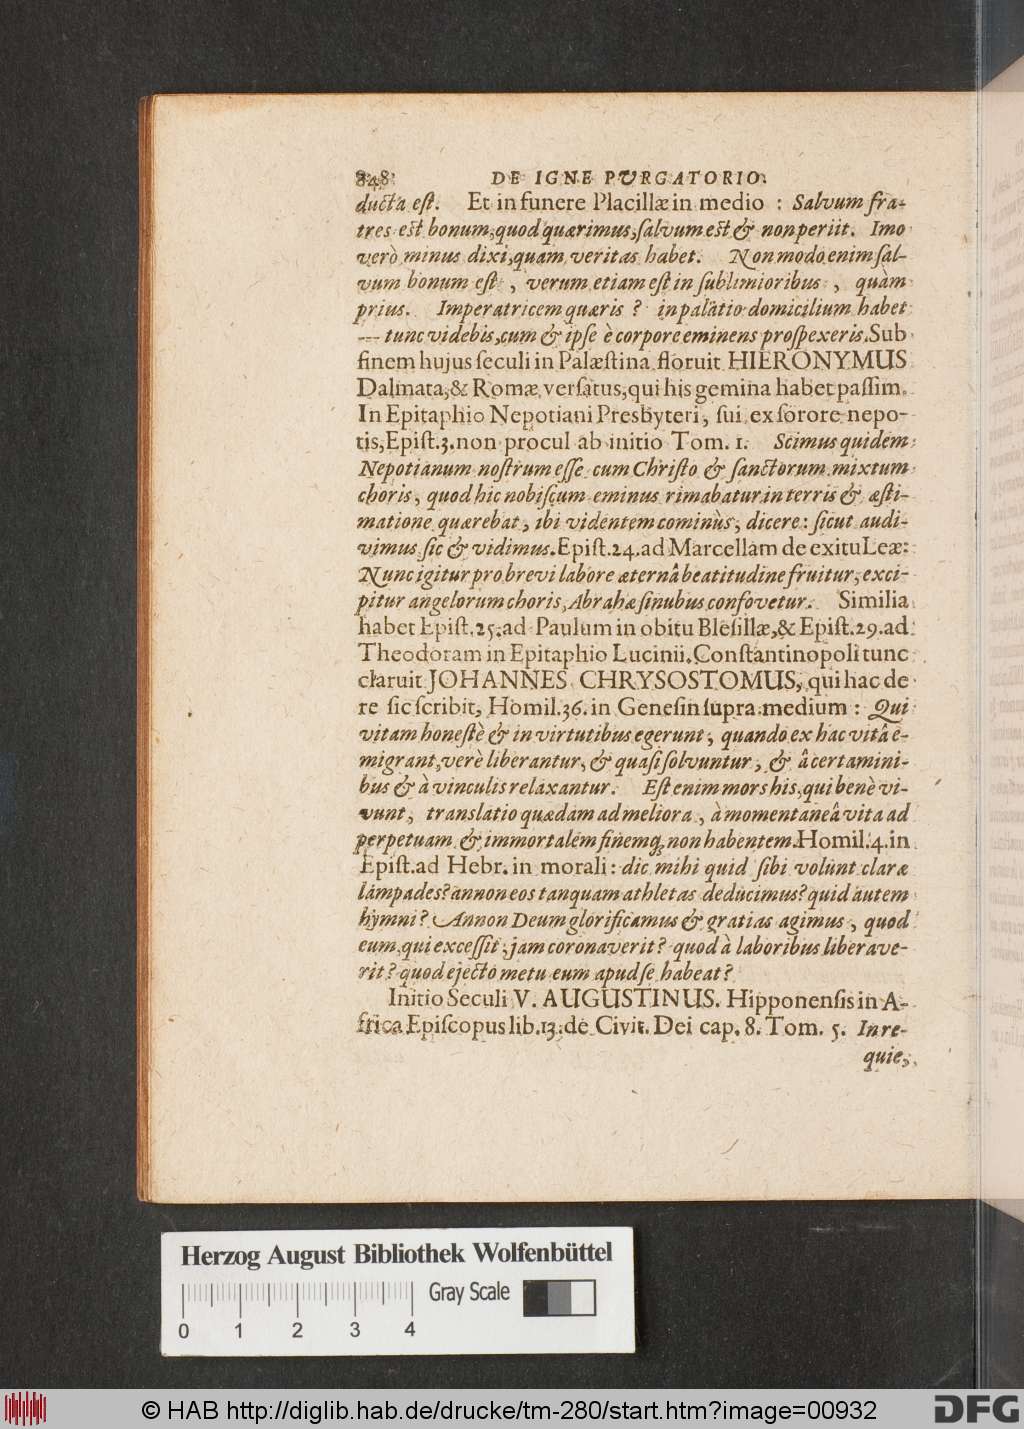 848 DE IGNE PURGATORIO.
ducta est. Et in funere Placillæ in medio : Salvum fra-
tres est bonum, quod quærimus, salvum est & non periit. Imo
verò minus dixi, quam veritas habet. Non modo enim sal-
vum bonum est , verum etiam est in sublimioribus , quàm
prius. Imperatricem quæris ? in palatio domicilium habet
--- tunc videbis, cum & ipse è corpore eminens prospexeris. Sub
finem hujus seculi in Palæstina floruit HIERONYMUS
Dalmata, & Romæ versatus, qui his gemina habet passim.
In Epitaphio Nepotiani Presbyteri, sui ex sorore nepo-
tis, Epist. 3. non procul ab initio Tom. 1. Scimus quidem
Nepotianum nostrum esse cum Christo & sanctorum mixtum
choris, quod hic nobiscum eminus rimabatur in terris & æsti-
matione quærebat, ibi videntem cominùs, dicere: sicut audi-
vimus sic & vidimus. Epist. 24. ad Marcellam de exitu Leæ:
Nunc igitur pro brevi labore æternâ beatitudine fruitur, exci-
pitur angelorum choris, Abrahæ sinubus confovetur. Similia
habet Epist. 25. ad Paulum in obitu Blesillæ, & Epist. 29. ad
Theodoram in Epitaphio Lucinii. Constantinopoli tunc
claruit JOHANNES CHRYSOSTOMUS, qui hac de
re sic scribit, Homil. 36. in Genesin supra medium : Qui
vitam honestè & in virtutibus egerunt, quando ex hac vitâ e-
migrant, verè liberantur, & quasi solvuntur, & â certamini-
bus & à vinculis relaxantur. Est enim mors his, qui benè vi-
vunt, translatio quædam ad meliora, à momentaneâ vita ad
perpetuam & immortalem finemq; non habentem. Homil. 4. in
Epist. ad Hebr. in morali : dic mihi quid sibi volunt claræ
lampades? annon eos tanquam athletas deducimus? quid autem
hymni? Annon Deum glorificamus & gratias agimus, quod
eum, qui excessit, jam coronaverit? quod à laboribus liberave-
rit? quod ejecto metu eum apud se habeat?
Initio Seculi V. AUGUSTINUS. Hipponensis in A-
frica Episcopus lib. 13. de Civit. Dei cap. 8. Tom. 5. In re-
quie,
Herzog August Bibliothek Wolfenbüttel
Gray Scale
0 1 2 3 4
© HAB http://diglib.hab.de/drucke/tm-280/start.htm?image=00932
DFG